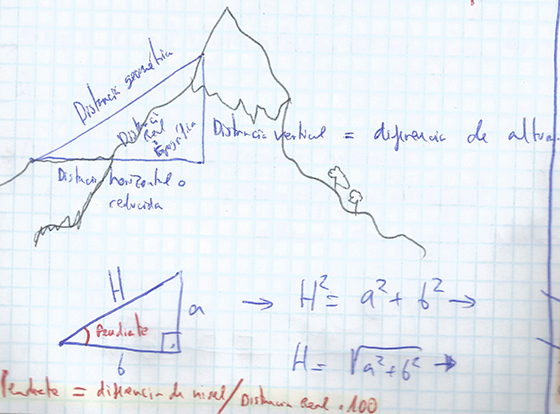 Distancia geométrica
Distancia
Real
o
topográfica
Distancia vertical = diferencia de altura
Distancia horizontal o
reducida
H
a
pendiente
b
→ H² = a² + b² →
H = √a² + b² →
Pendiente = diferencia de nivel / Distancia Real · 100